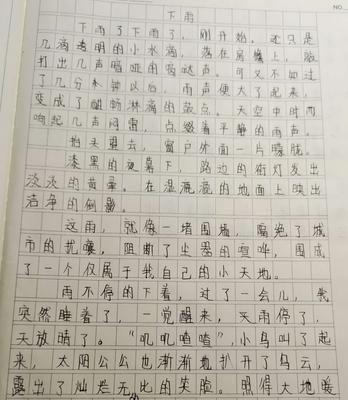 NO.
下雨
下雨了下雨了，刚开始，还只是
几滴透明的小水滴，落在房檐上，敲
打出几声喑哑的曼达声。可又不知过
了几分木钟以后，雨声便大了起来，
变成了酣畅淋漓的鼓点。天空中时而
响起几声闷雷，点缀着平静的雨声。
抬头望去，窗户外面一片朦胧。
漆黑的夜幕下，路边的街灯发出
淡淡的黄晕。在湿漉漉的地面上映出
洁净的倒影。
这雨，就像一堵围墙，隔绝了城
市的扰嚷，阻断了尘嚣的喧哗，围成
了一个仅属于我自己的小天地。
雨不停的下着，过了一会儿，我
突然睡着了，一觉醒来，天雨停了，
天放晴了。“叽叽喳喳”，小鸟叫了起
来，太阳公公也渐渐地扒开了乌云，
露出了灿烂无比的笑脸。照得大地暖